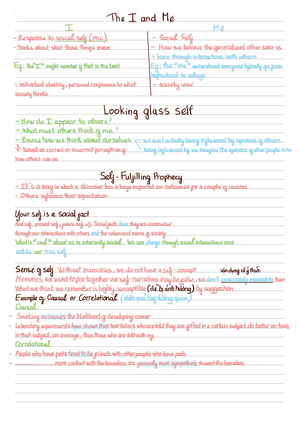 The I and Me
I
Me
- Response to social self (me)
- Thinks about what those things mean
Eg: The "I" might wonder if that is the best
- individual identity, personal responses to what
society thinks
- Social Self
- How we believe the generalized other sees us
+ learn through interactions with others
Eg: the "me" understand everyone typically go from
highschool to college
- societal view
Looking glass self
- How do I appear to others?
- What must others think of me?
- Revise how we think about ourselves
based on correct or incorrect perception of
how others see us
we arent actually being influenced by opinions of others
being influenced by we imagine the opinions of other people to be
Self-Fulfilling Prophecy
- It's a way in which a skimmer has a huge impact on outcomes for a couple of reasons.
- Others influence their expectation
Your self is a social fact
Past self, present self, future self
through our interactions with others and the values and norms of society
What is "real" about us is inherently social. We can change through social interactions and
still be our true self.
Sense of self Without memories, we do not have a self-concept
Memories we used to pie together our self-narratives may be false, we don't consciously manipulate them
What we think we remember is highly susceptible (dễ bị ảnh hưởng) by suggestion
Example of Causal or Correlational (nhân quả hay tương quan)
Causal:
- Smoking increases the likelihood of developing cancer
- Laboratory experiments have shown that test takers who are told they are gifted in a certain subject do better on tests
in that subject, on average, than those who are told nothing
Correlational
- People who have pets tend to be friends with other people who have pets.
- more contact with the homeless are generally more sympathetic toward the homeless